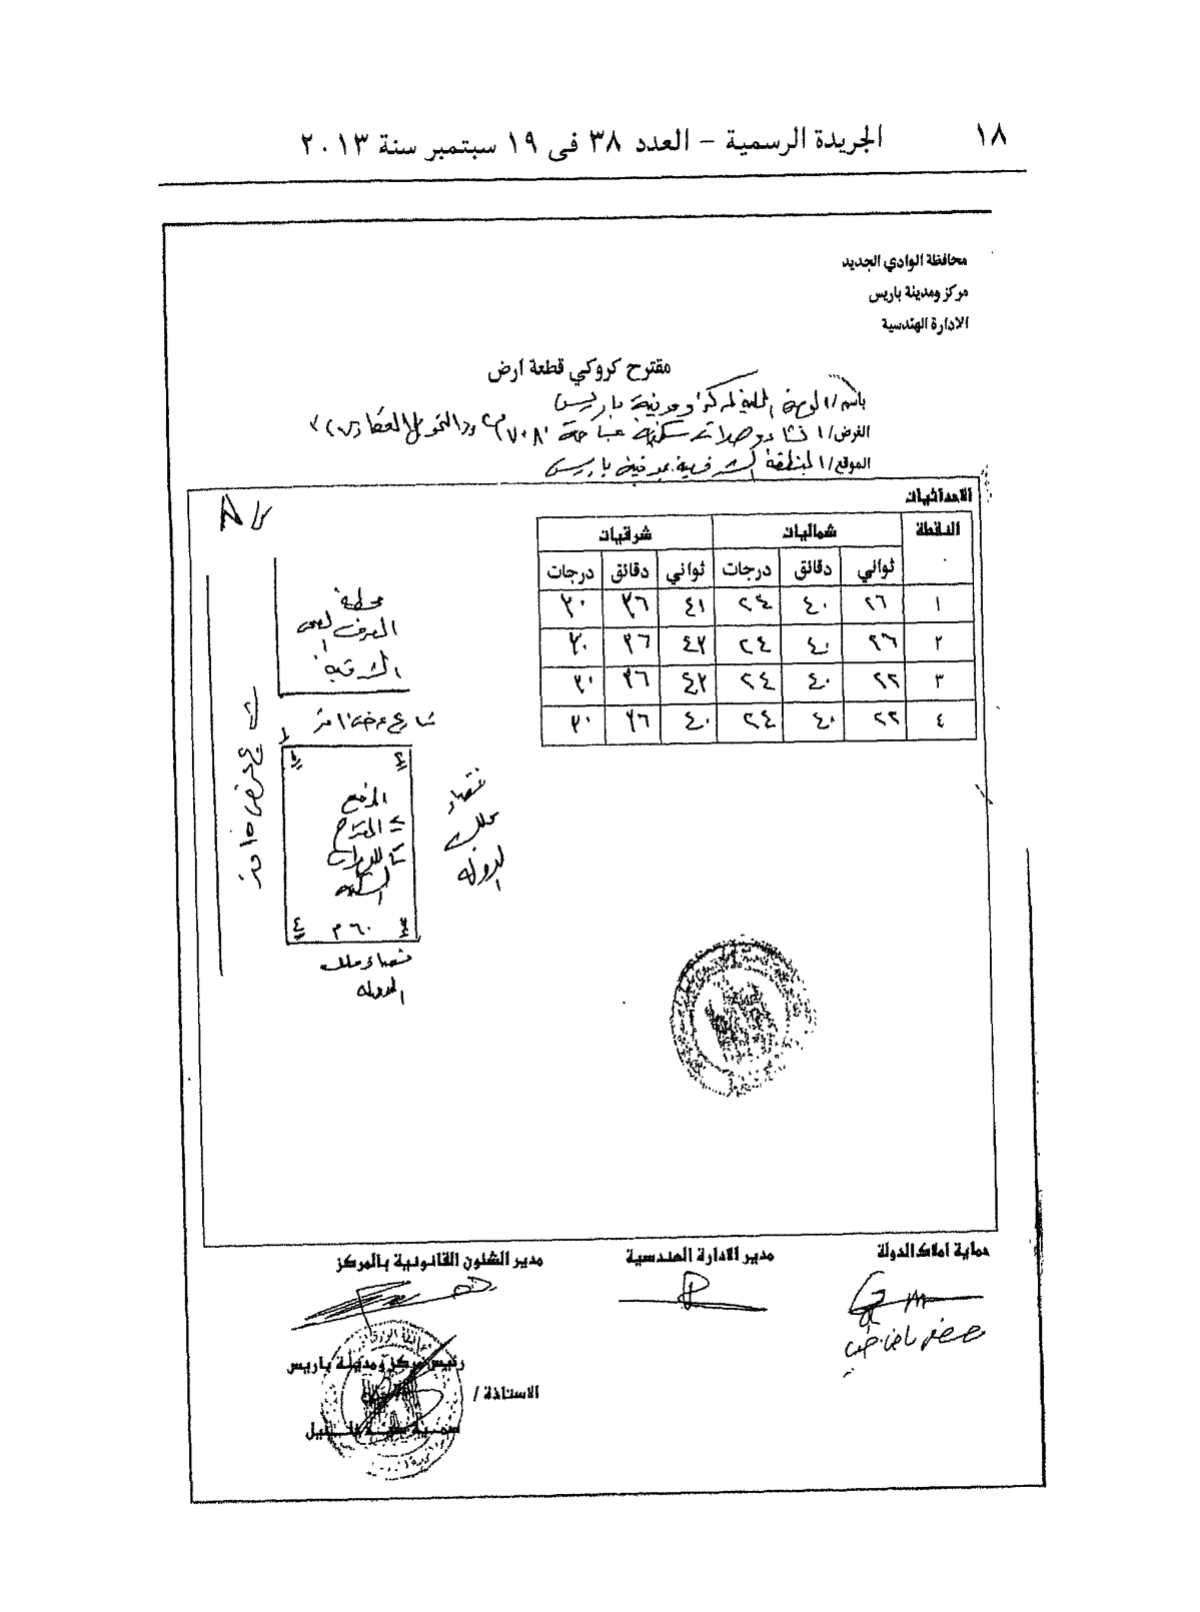 ١٨
الجريدة الرسمية – العدد ٣٨ فى ١٩ سبتمبر سنة ٢٠١٣
محافظة الوادي الجديد
مركز ومدينة باريس
الادارة الهندسية
مقترح كروكي قطعة ارض
باسم / الوحدة المحلية لمركز ومدينة باريس
الغرض / انشاء وحدات سكنية بمساحة ٧٠٨٠م٢
الموقع / المنطقة الشرقية بمدينة باريس
الاحداثيات
النقطة شماليات شرقيات
ثواني دقائق درجات ثواني دقائق درجات
١ ٢٦ ٤٠ ٢٤ ٤١ ٣٦ ٣٠
٢ ٢٦ ٤٠ ٢٤ ٤٣ ٣٦ ٣٠
٣ ٢٢ ٤٠ ٢٤ ٤٣ ٣٦ ٣٠
٤ ٢٢ ٤٠ ٢٤ ٤٠ ٣٦ ٣٠
محطة
الصرف الصحى
الشرقية
شارع عرض ١٠ متر
شارع عرض ١٥ متر
الموقع
المقترح
للوحدات
السكنية
٦٠ م
فضاء
ملك
الدولة
فضاء ملك
الدولة
حماية املاك الدولة
مدير الادارة الهندسية
مدير الشئون القانونية بالمركز
رئيس مركز ومدينة باريس
الاستاذة /